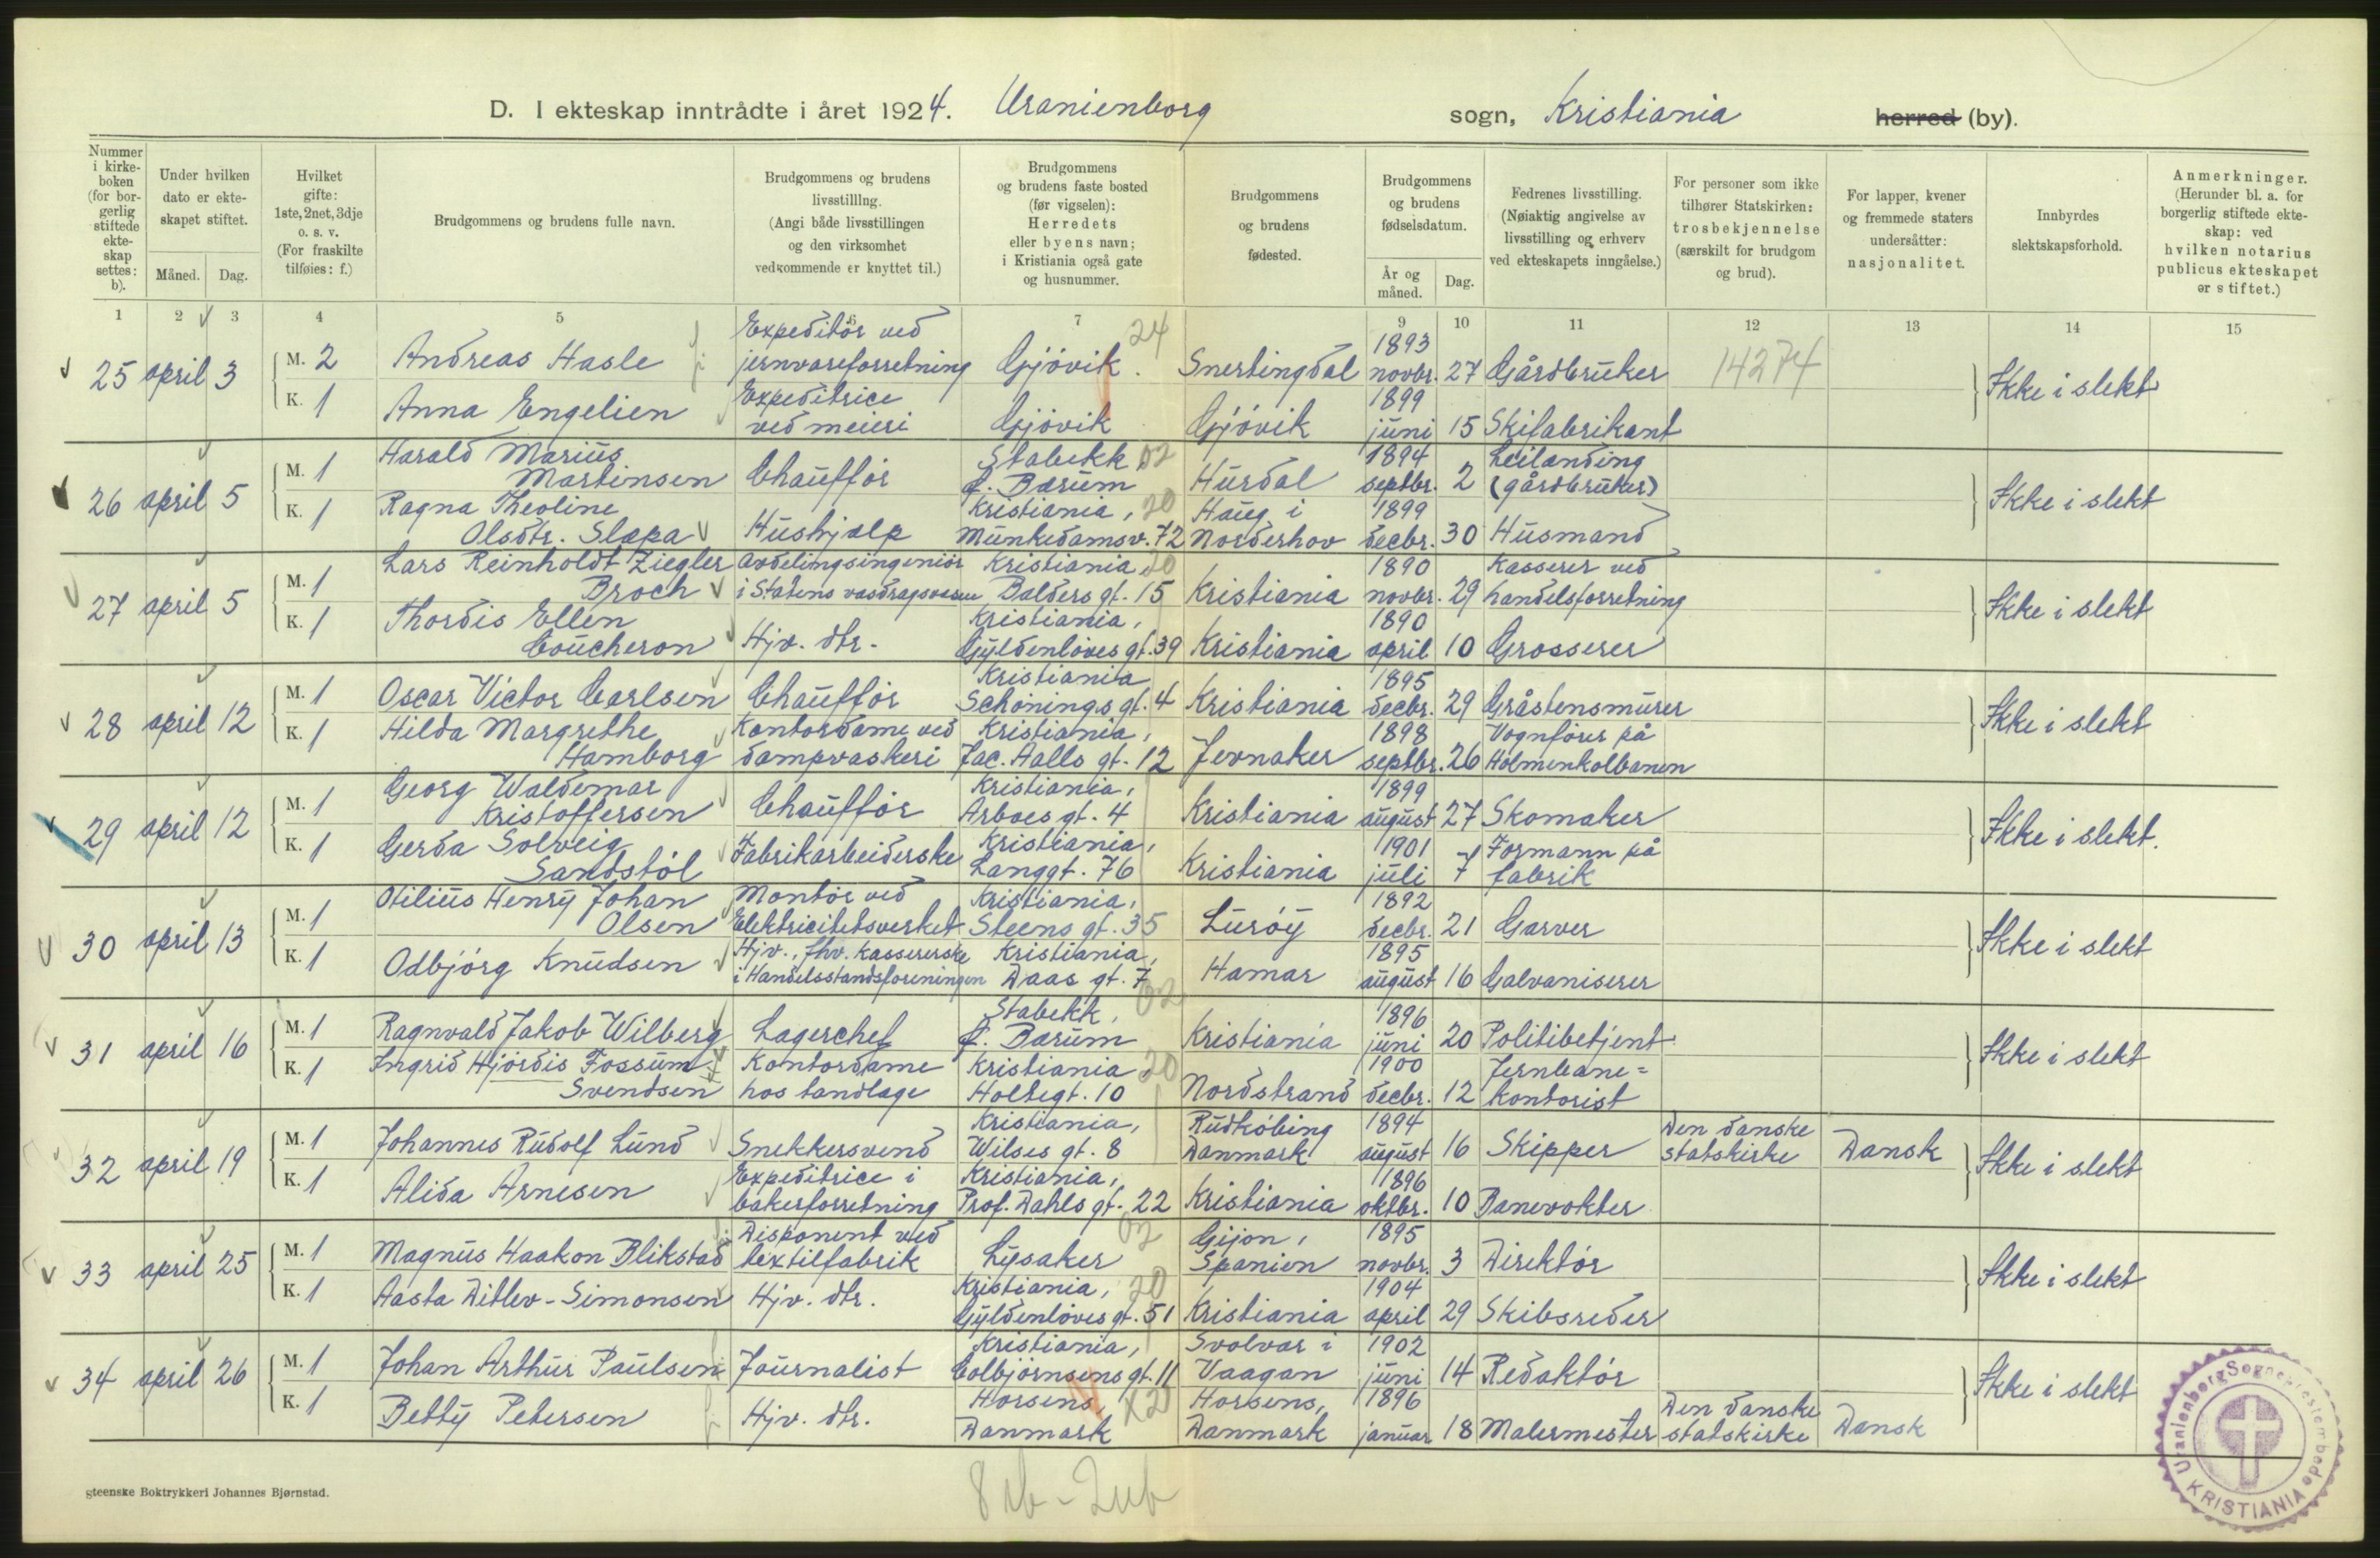 D. I ekteskap inntrådte i året 1924. Uranienborg sogn, Kristiania herred (by).
Nummer i kirkeboken (for borgerlig stiftede ekteskap settes: b).
Under hvilken dato er ekteskapet stiftet.
Måned. Dag.
Hvilket gifte: 1ste, 2net, 3dje o. s. v. (For fraskilte tilføies: f.)
Brudgommens og brudens fulle navn.
Brudgommens og brudens livsstilling. (Angi både livsstillingen og den virksomhet vedkommende er knyttet til.)
Brudgommens og brudens faste bosted (før vigselen): Herredets eller byens navn; i Kristiania også gate og husnummer.
Brudgommens og brudens fødested.
Brudgommens og brudens fødselsdatum.
År og måned. Dag.
Fedrenes livsstilling. (Nøiaktig angivelse av livsstilling og erhverv ved ekteskapets inngåelse.)
For personer som ikke tilhører Statskirken: trosbekjennelse (særskilt for brudgom og brud).
For lapper, kvener og fremmede staters undersåtter: nasjonalitet.
Innbyrdes slektskapsforhold.
Anmerkninger. (Herunder bl. a. for borgerlig stiftede ekteskap: ved hvilken notarius publicus ekteskapet er stiftet.)
1 2 3 4 5 6 7 9 10 11 12 13 14 15
25 april 3 M. 2 Andreas Hasle Expeditør ved jernvareforretning Gjövik. 24 Snertingdal 1893 novbr. 27 Gårdbruker 14274 Ikke i slekt
K. 1 Anna Engelien Expeditrice ved meieri Gjövik Gjövik 1899 juni 15 Skifabrikant
26 april 5 M. 1 Harald Marius Martinsen Chauffør Stabekk 02 p. Bærum Hurdal 1894 septbr. 2 Leilending (gårdbruker) Ikke i slekt
K. 1 Ragna Theoline Olsdtr. Slæpa Hushjælp Kristiania, 20 Munkedamsv. 72 Haug i Norderhov 1899 decbr. 30 Husmand
27 april 5 M. 1 Lars Reinholdt Ziegler Broch avdelingsingeniør i Statens vasdragsvesen Kristiania 20 Balders gt. 15 Kristiania 1890 novbr. 29 Kasserer ved handelsforretning Ikke i slekt
K. 1 Thordis Ellen Coucheron Hjv. dtr. Kristiania, Gyldenløves gt. 39 Kristiania 1890 april 10 Grosserer
28 april 12 M. 1 Oscar Victor Carlsen Chauffør Kristiania Schønings gt. 4 Kristiania 1895 decbr. 29 Gråstensmurer Ikke i slekt
K. 1 Hilda Margrethe Hamborg Kontordame ved dampvaskeri Kristiania, Jac. Aalls gt. 12 Jevnaker 1898 septbr. 26 Vognfører på Holmenkolbanen
29 april 12 M. 1 Georg Waldemar Kristoffersen Chauffør Kristiania, Arboes gt. 4 Kristiania 1899 august 27 Skomaker Ikke i slekt.
K. 1 Gerda Solveig Sandstöl Fabrikarbeiderske Kristiania, Langgt. 76 Kristiania 1901 juli 7 Formann på fabrik
30 april 13 M. 1 Otilius Henry Johan Olsen Montør ved Elektricitetsverket Kristiania, Steens gt. 35 Lurøy 1892 decbr. 21 Garver Ikke i slekt
K. 1 Odbjörg Knudsen Hjv., fhv. kassererske i Handelsstandsforeningen Kristiania, Daas gt. 7 Hamar 1895 august 16 Galvaniserer
31 april 16 M. 1 Ragnvald Jakob Wilberg Lagerchef Stabekk, 02 p. Bærum Kristiania 1896 juni 20 Politibetjent Ikke i slekt
K. 1 Ingrid Hjördis Fossum Svendsen Kontordame hos tandlæge Kristiania 20 Holtegt. 10 Nordstrand 1900 decbr. 12 Jernbane= kontorist
32 april 19 M. 1 Johannes Rudolf Lund Snekkersvend Kristiania, Wilses gt. 8 Rudköbing Danmark 1894 august 16 Skipper Den danske statskirke Dansk Ikke i slekt
K. 1 Alida Arnesen Expeditrice i bakerforretning Kristiania, Prof. Dahls gt. 22 Kristiania 1896 oktbr. 10 Banevokter
33 april 25 M. 1 Magnus Haakon Blikstad Disponent ved textilfabrik Lysaker 02 Gijon, Spanien 1895 novbr. 3 Direktör Ikke i slekt
K. 1 Aasta Ditlev-Simonsen Hjv. dtr. Kristiania, 20 Gyldenløves gt. 51 Kristiania 1904 april 29 Skibsreder
34 april 26 M. 1 Johan Arthur Paulsen Journalist Kristiania, Colbjörnsens gt. 11 Svolvær i Vaagan 1902 juni 14 Redaktör Ikke i slekt
K. 1 Betty Petersen Hjv. dtr. Horsens, Danmark Horsens, Danmark 1896 januar 18 Malermester Den danske statskirke Dansk
gteenske Boktrykkeri Johannes Bjørnstad.
Uranienborg Sogneprestembede KRISTIANIA